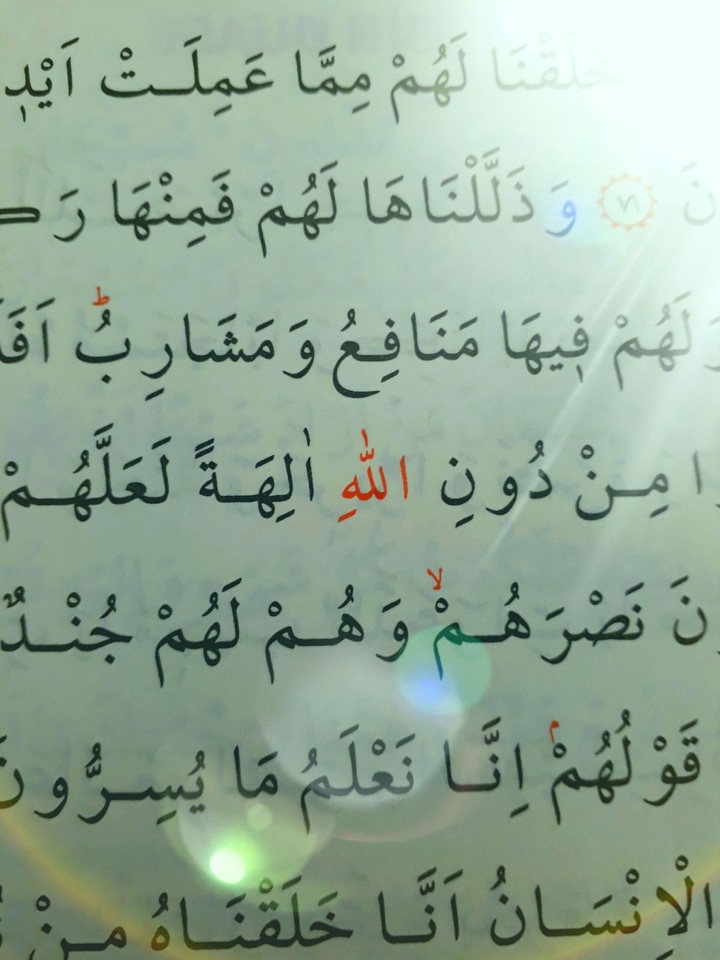 خَلَقْنَا لَهُمْ مِمَّا عَمِلَـتْ اَيْدٖ
نَ ٧١ وَذَلَّلْنَاهَا لَهُمْ فَمِنْهَا رَكـ
وَلَهُمْ فٖيهَا مَنَافِعُ وَمَشَارِبُؕ اَفَلَ
ا مِـنْ دُونِ اللّٰهِ اٰلِهَـةً لَعَلَّهُـمْ
ونَ نَصْرَهُـمْۙ وَهُـمْ لَهُمْ جُنْـدٌ
قَوْلُهُمْۘ اِنَّـا نَعْلَمُ مَا يُسِـرُّونَ
الْاِنْسَـانُ اَنَّـا خَلَقْنَـاهُ مِـنْ